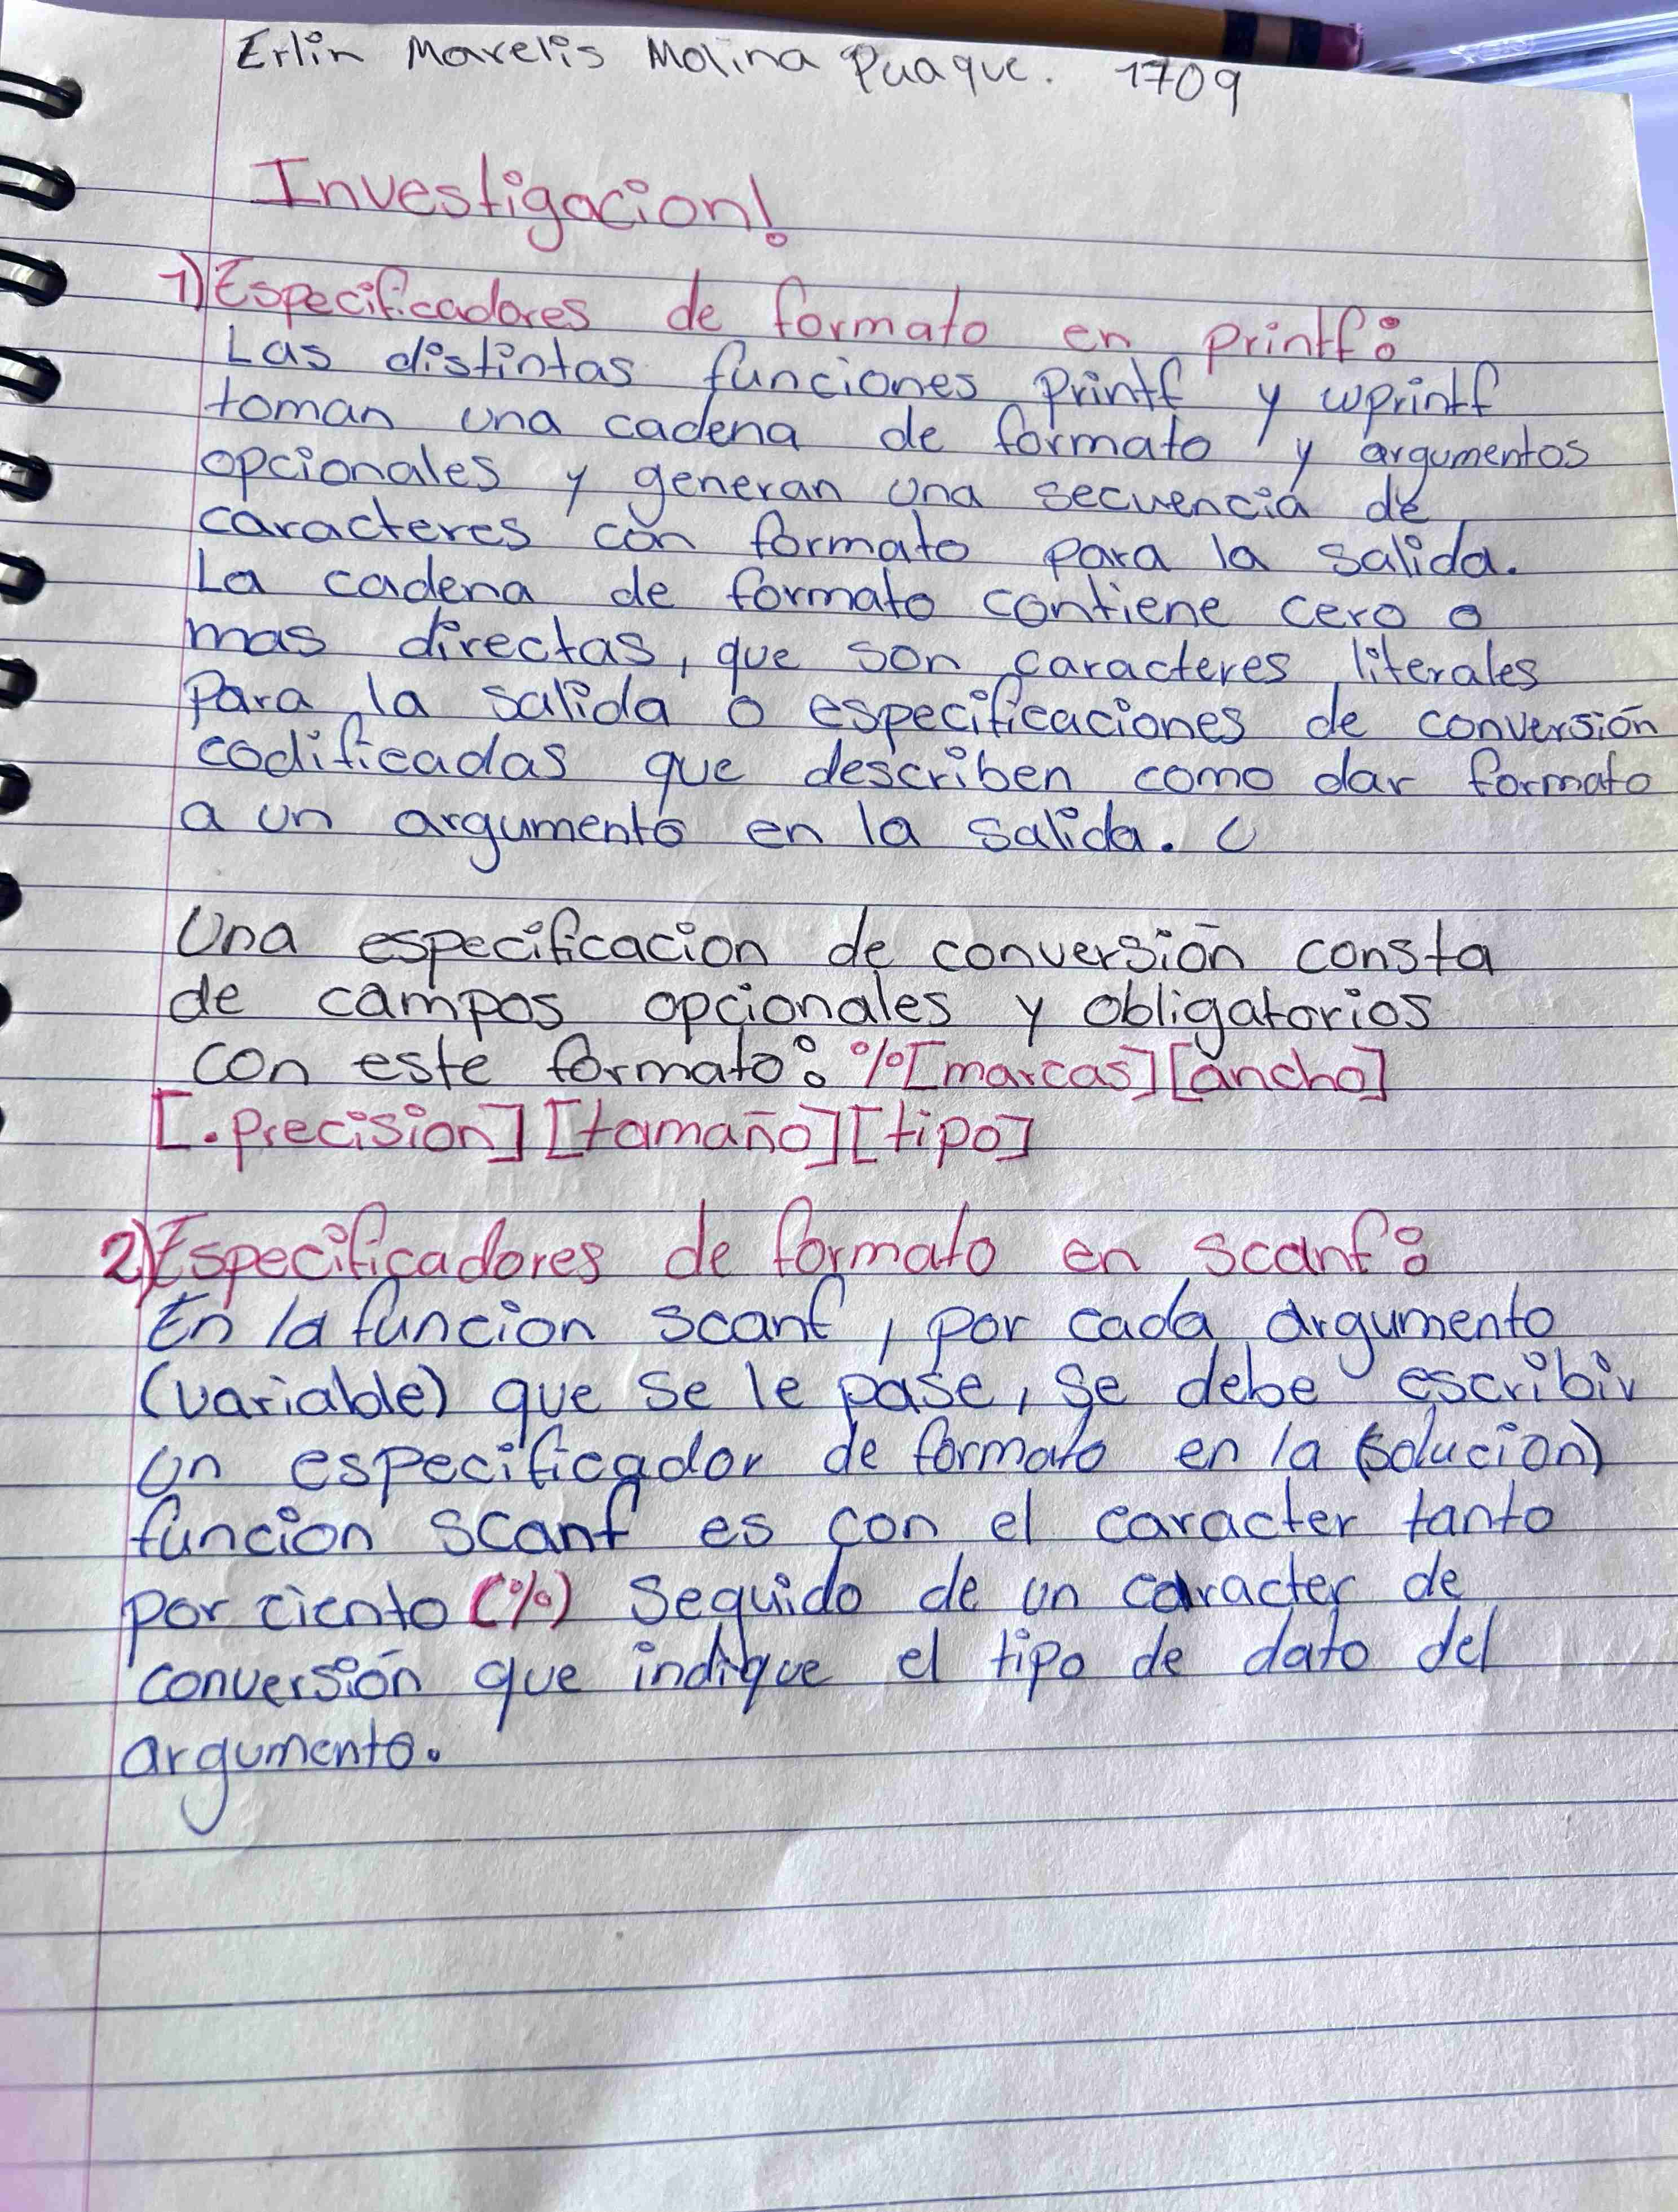 Erlin Marelis Molina Puaque. 1709
Investigacion!
1) Especificadores de formato en printf:
Las distintas funciones printf y wprintf
toman una cadena de formato y argumentos
opcionales y generan una secuencia de
caracteres con formato para la salida.
La cadena de formato contiene cero o
mas directas, que son caracteres literales
Para la salida o especificaciones de conversión
codificadas que describen como dar formato
a un argumento en la salida. C
Una especificacion de conversión consta
de campos opcionales y obligatorios
con este formato: %[marcas][ancho]
[.precision][tamaño][tipo]
2) Especificadores de formato en scanf:
En la funcion scanf, por cada argumento
(variable) que se le pase, se debe escribir
un especificador de formato en la (solucion)
funcion scanf es con el caracter tanto
por ciento (%) Seguido de un caracter de
conversión que indique el tipo de dato del
argumento.